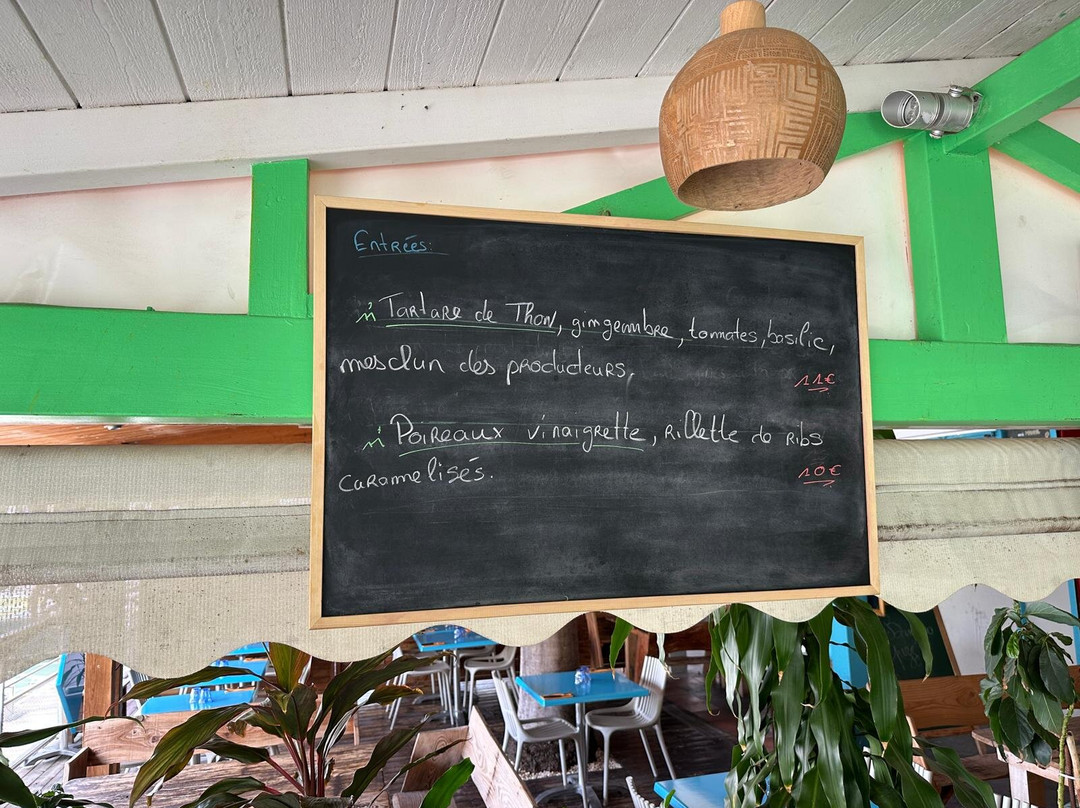 Entrées:
Tartare de Thon, gingembre, tomates, basilic,
mesclun des producteurs.
11€
Poireaux vinaigrette, Rillette de Ribs
caramelisés.
10€